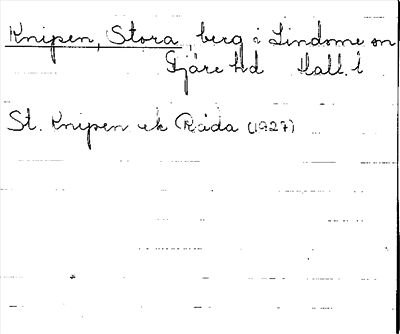 Knipen, Stora, berg i Lindome sn
Fjäre hd Hall. l
St. Knipen ek Råda (1927)